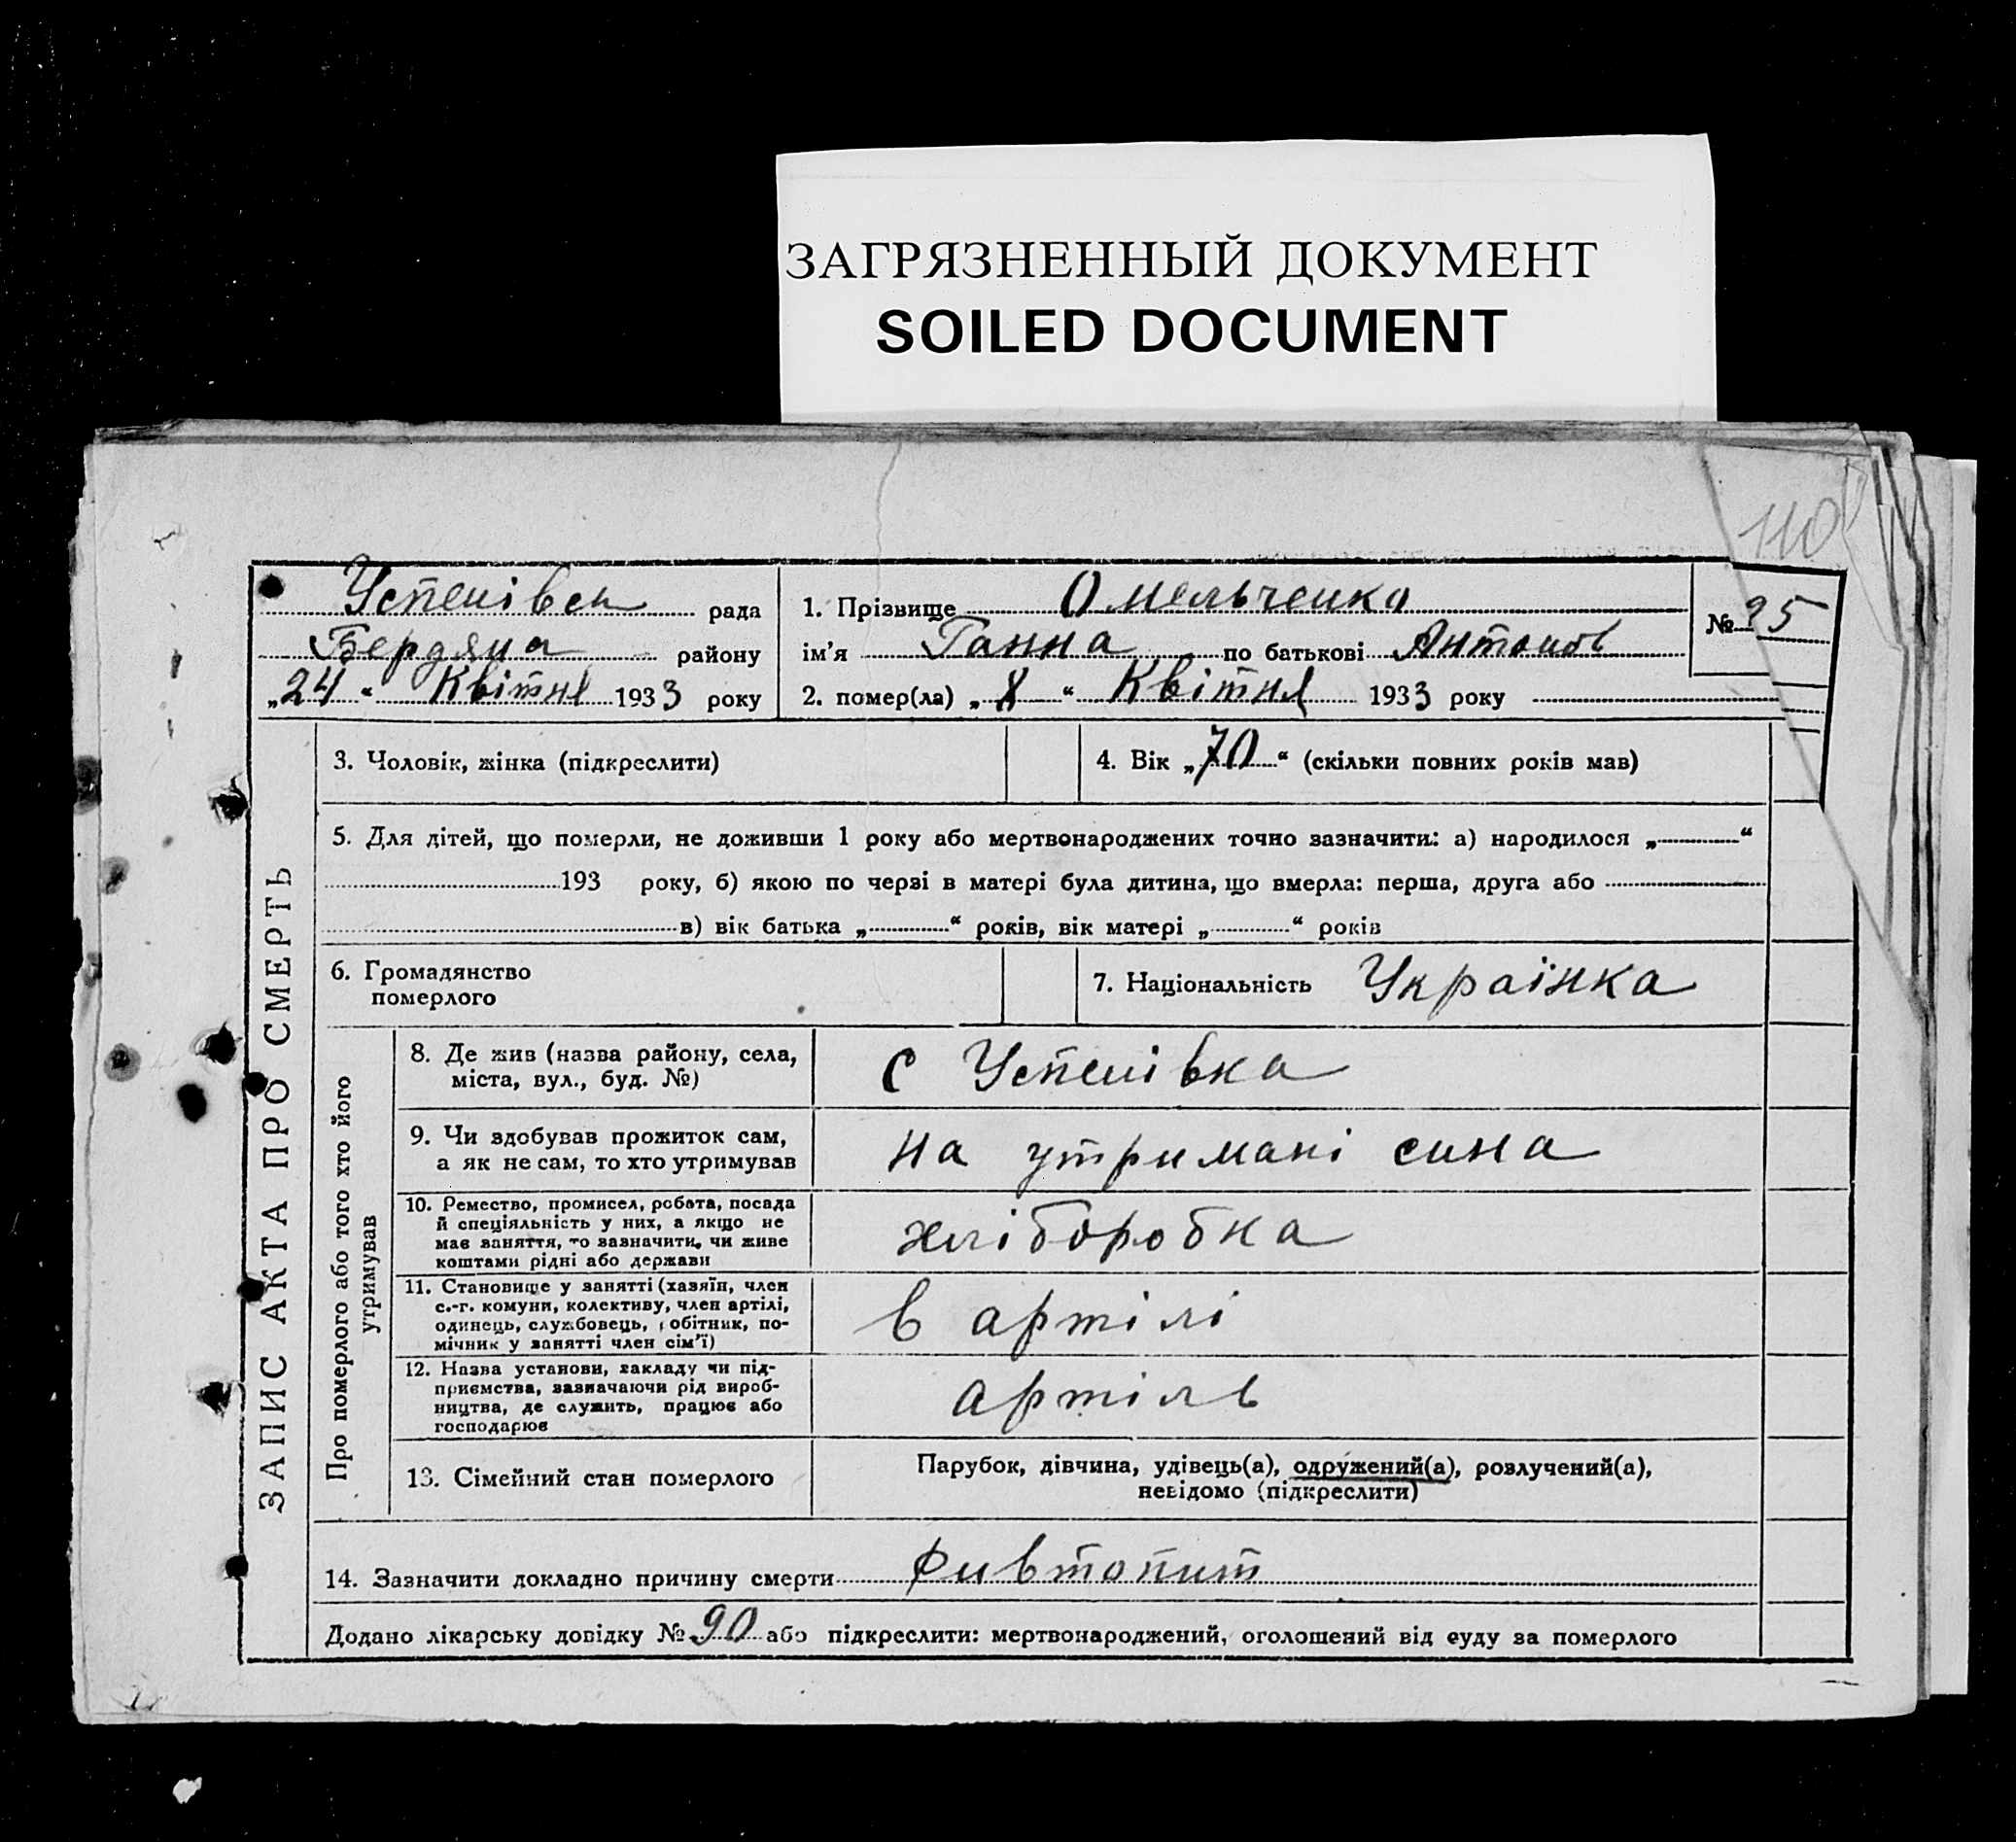 ЗАГРЯЗНЕННЫЙ ДОКУМЕНТ
SOILED DOCUMENT
110
Успенівськ рада
Бердяна району
„24“ Квітня 1933 року
1. Прізвище Омельченко
ім’я Ганна по батькові Антонов
2. помер(ла) „8“ Квітня 1933 року
№ 95
ЗАПИС АКТА ПРО СМЕРТЬ
3. Чоловік, жінка (підкреслити)
4. Вік „70“ (скільки повних років мав)
5. Для дітей, що померли, не доживши 1 року або мертвонароджених точно зазначити: а) народилося „ “
193 року, б) якою по черзі в матері була дитина, що вмерла: перша, друга або
в) вік батька „ “ років, вік матері „ “ років
6. Громадянство
померлого
7. Національність Українка
Про померлого або того хто його
утримував
8. Де жив (назва району, села,
міста, вул., буд. №)
с Успенівка
9. Чи здобував прожиток сам,
а як не сам, то хто утримував
на утримані сина
10. Ремество, промисел, робота, посада
й спеціяльність у них, а якщо не
має заняття, то зазначити, чи живе
коштами рідні або держави
хліборобка
11. Становище у занятті (хазяїн, член
с.-г. комуни, колективу, член артілі,
одинець, службовець, робітник, по-
мічник у занятті член сім’ї)
в артілі
12. Назва установи, закладу чи під-
приємства, зазначаючи рід вироб-
ництва, де служить, працює або
господарює
артіль
13. Сімейний стан померлого
Парубок, дівчина, удівець(а), одружений(а), розлучений(а),
невідомо (підкреслити)
14. Зазначити докладно причину смерти
Додано лікарську довідку № 90 або підкреслити: мертвонароджений, оголошений від суду за померлого